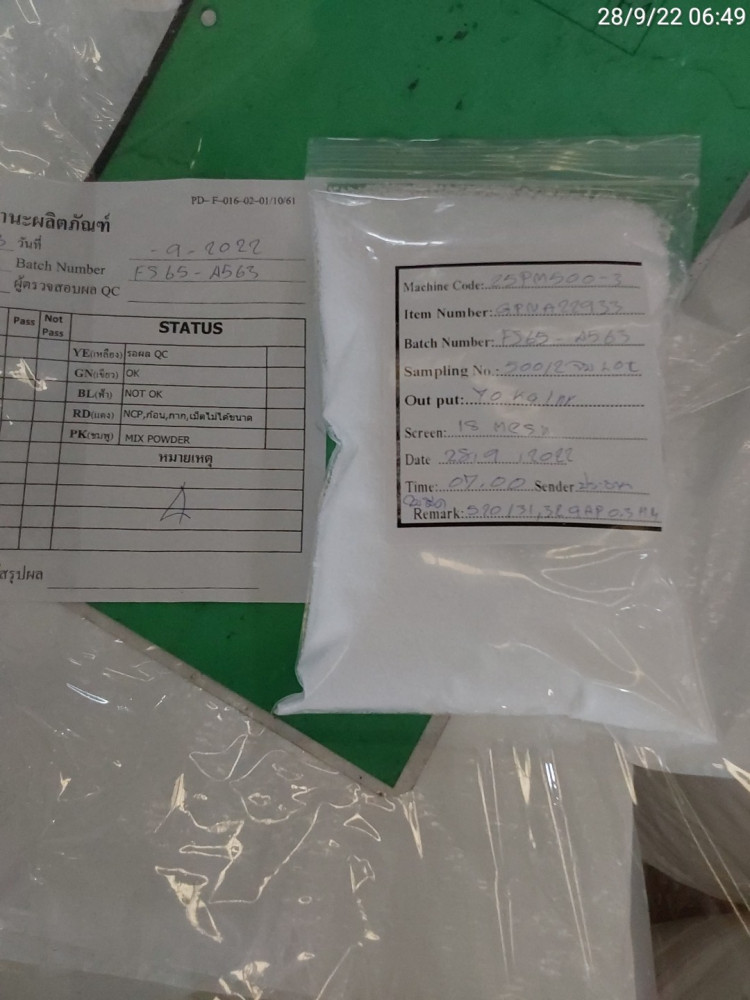 28/9/22 06:49
PD-F-016-02-01/10/61
านะผลิตภัณฑ์
วันที่ -9-2022
Batch Number FS65-A563
ผู้ตรวจสอบผล QC
Pass Not Pass STATUS
YE(เหลือง) รอผล QC
GN(เขียว) OK
BL(ฟ้า) NOT OK
RD(แดง) NCP,ก้อน,กาก,เม็ดไม่ได้ขนาด
PK(ชมพู) MIX POWDER
หมายเหตุ
สรุปผล
Machine Code: 25PM500-3
Item Number: GPNA22933
Batch Number: FS65-A563
Sampling No.: 500/2 LOT
Out put: 40 kg/hr
Screen: 18 mesh
Date 28.9.2022
Time: 07.00 Sender
Remark: